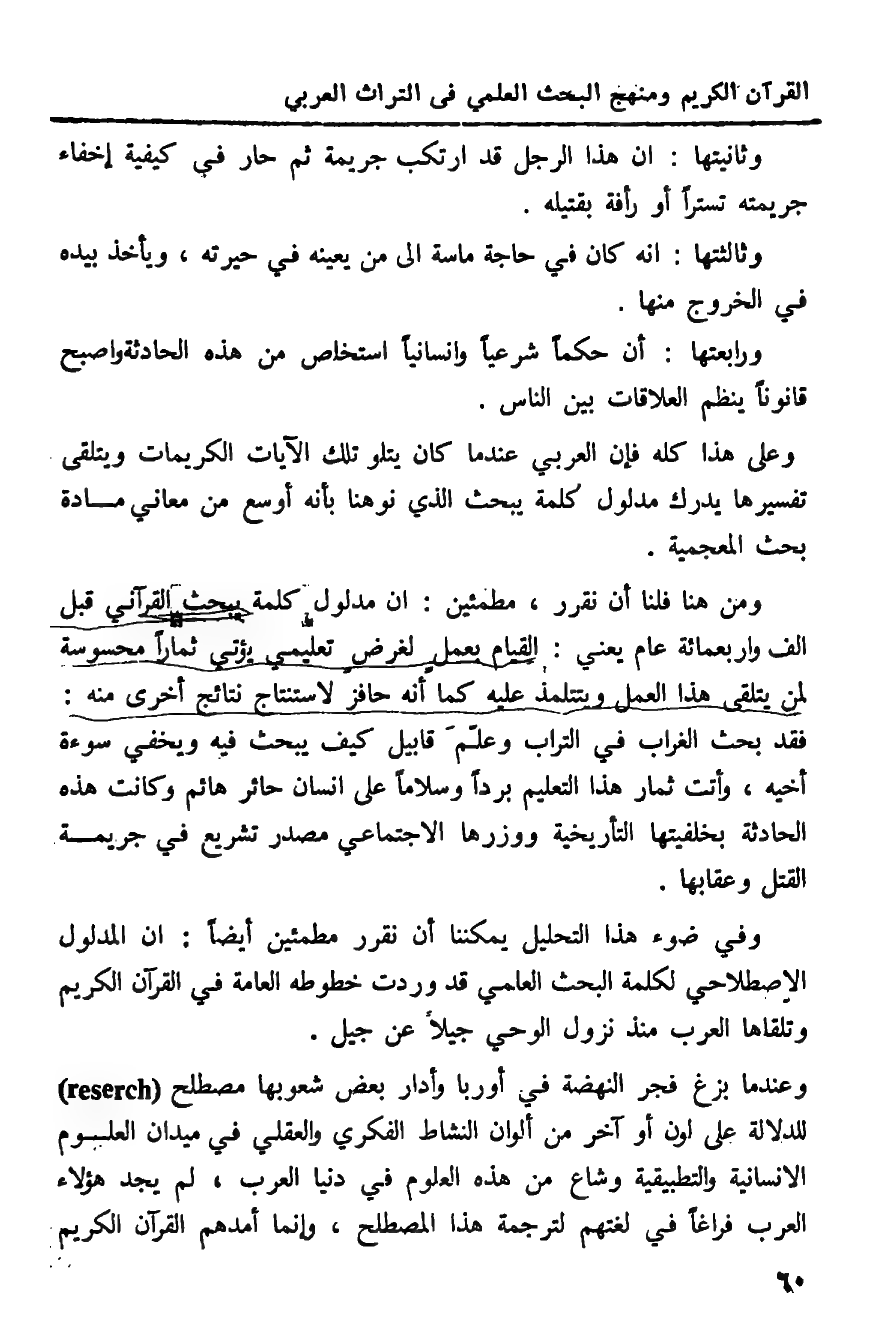 القرآن الكريم ومنهج البحث العلمي فى التراث العربي
وثانيتها : ان هذا الرجل قد ارتكب جريمة ثم حار في كيفية إخفاء
جريمته تستراً أو رأفة بقتيله .
وثالثتها : انه كان في حاجة ماسة الى من يعينه في حيرته ، ويأخذ بيده
في الخروج منها .
ورابعتها : أن حكماً شرعياً وانسانياً استخلص من هذه الحادثةواصبح
قانوناً ينظم العلاقات بين الناس .
وعلى هذا كله فإن العربي عندما كان يتلو تلك الآيات الكريمات ويتلقى
تفسيرها يدرك مدلول كلمة يبحث الذي نوهنا بأنه أوسع من معاني مـــادة
بحث المعجمية .
ومن هنا فلنا أن نقرر ، مطمئين : ان مدلول كلمة يبحث القرآني قبل
الف واربعمائة عام يعني : القيام بعمل لغرض تعليمي يؤتي ثماراً محسوسة
لمن يتلقى هذا العمل ويتتلمذ عليه كما أنه حافز لاستنتاج نتائج أخرى منه :
فقد بحث الغراب في التراب وعلّم قابيل كيف يبحث فيه ويخفي سوءة
أخيه ، وأتت ثمار هذا التعليم برداً وسلاماً على انسان حائر هائم وكانت هذه
الحادثة بخلفيتها التأريخية ووزرها الاجتماعي مصدر تشريع في جريمـــة
القتل وعقابها .
وفي ضوء هذا التحليل يمكننا أن نقرر مطمئين أيضاً : ان المدلول
الإصطلاحي لكلمة البحث العلمي قد وردت خطوطه العامة في القرآن الكريم
وتلقاها العرب منذ نزول الوحي جيلاً عن جيل .
وعندما بزغ فجر النهضة في أوربا وأدار بعض شعوبها مصطلح (reserch)
للدلالة على لون أو آخر من ألوان النشاط الفكري والعقلي في ميدان العلـــوم
الانسانية والتطبيقية وشاع من هذه العلوم في دنيا العرب ، لم يجد هؤلاء
العرب فراغاً في لغتهم لترجمة هذا المصطلح ، وإنما أمدهم القرآن الكريم
٦٠